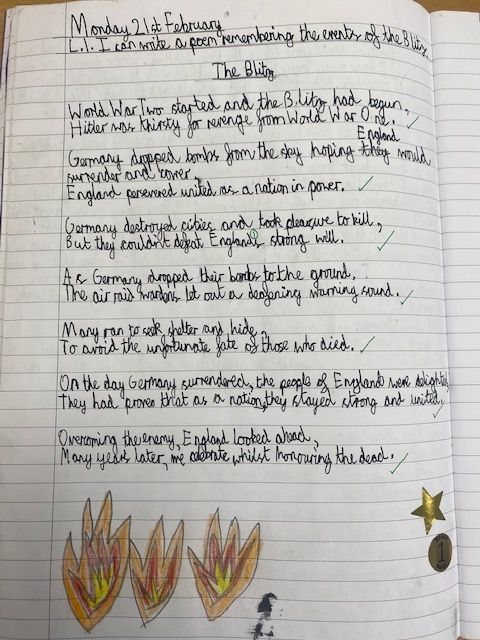 Monday 21st February
L.I. I can write a poem remembering the events of the Blitz.
The Blitz
World War Two started and the Blitz had begun,
Hitler was thirsty for revenge from World War One.
England
Germany dropped bombs from the sky hoping they would
surrender and cower,
England persevered united as a nation in power.
Germany destroyed cities and took pleasure to kill,
But they couldn't defeat England's strong will.
As Germany dropped their bombs to the ground,
The air raid wardens let out a deafening warning sound.
Many ran to seek shelter and hide,
To avoid the unfortunate fate of those who died.
On the day Germany surrendered, the people of England were delighted,
They had proven that as a nation, they stayed strong and united.
Overcoming the enemy, England looked ahead,
Many years later, we celebrate whilst honouring the dead.
1